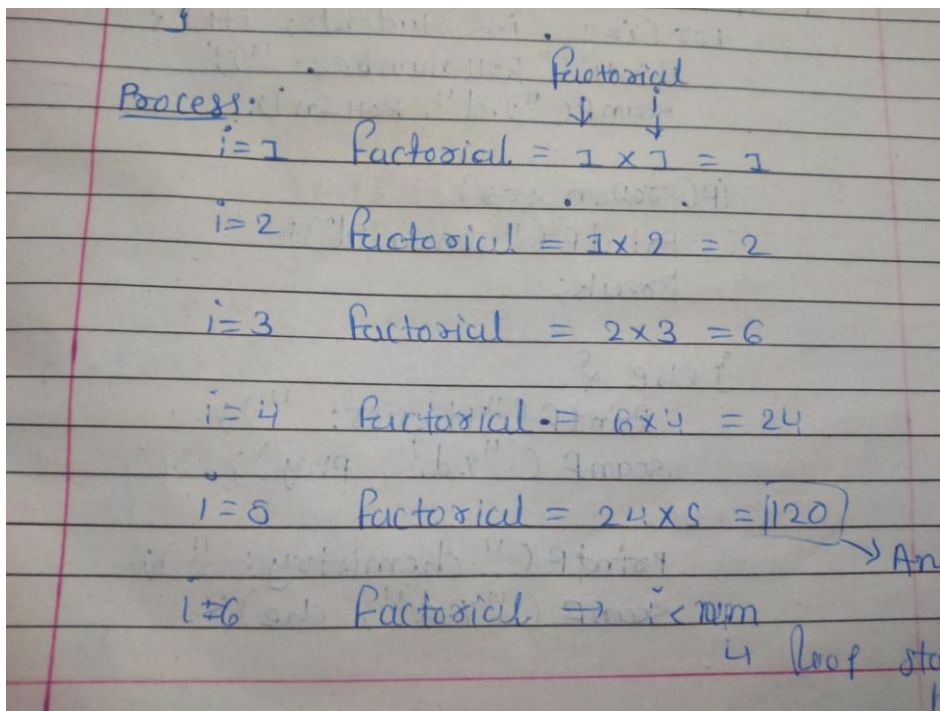 }
factorial
Process:
↓ ↓
i=1 factorial = 1 x 1 = 1
i=2 factorial = 1x2 = 2
i=3 factorial = 2x3 = 6
i=4 factorial = 6x4 = 24
i=5 factorial = 24x5 = 120
→ An
i=6 factorial → i< num
4 loop sto